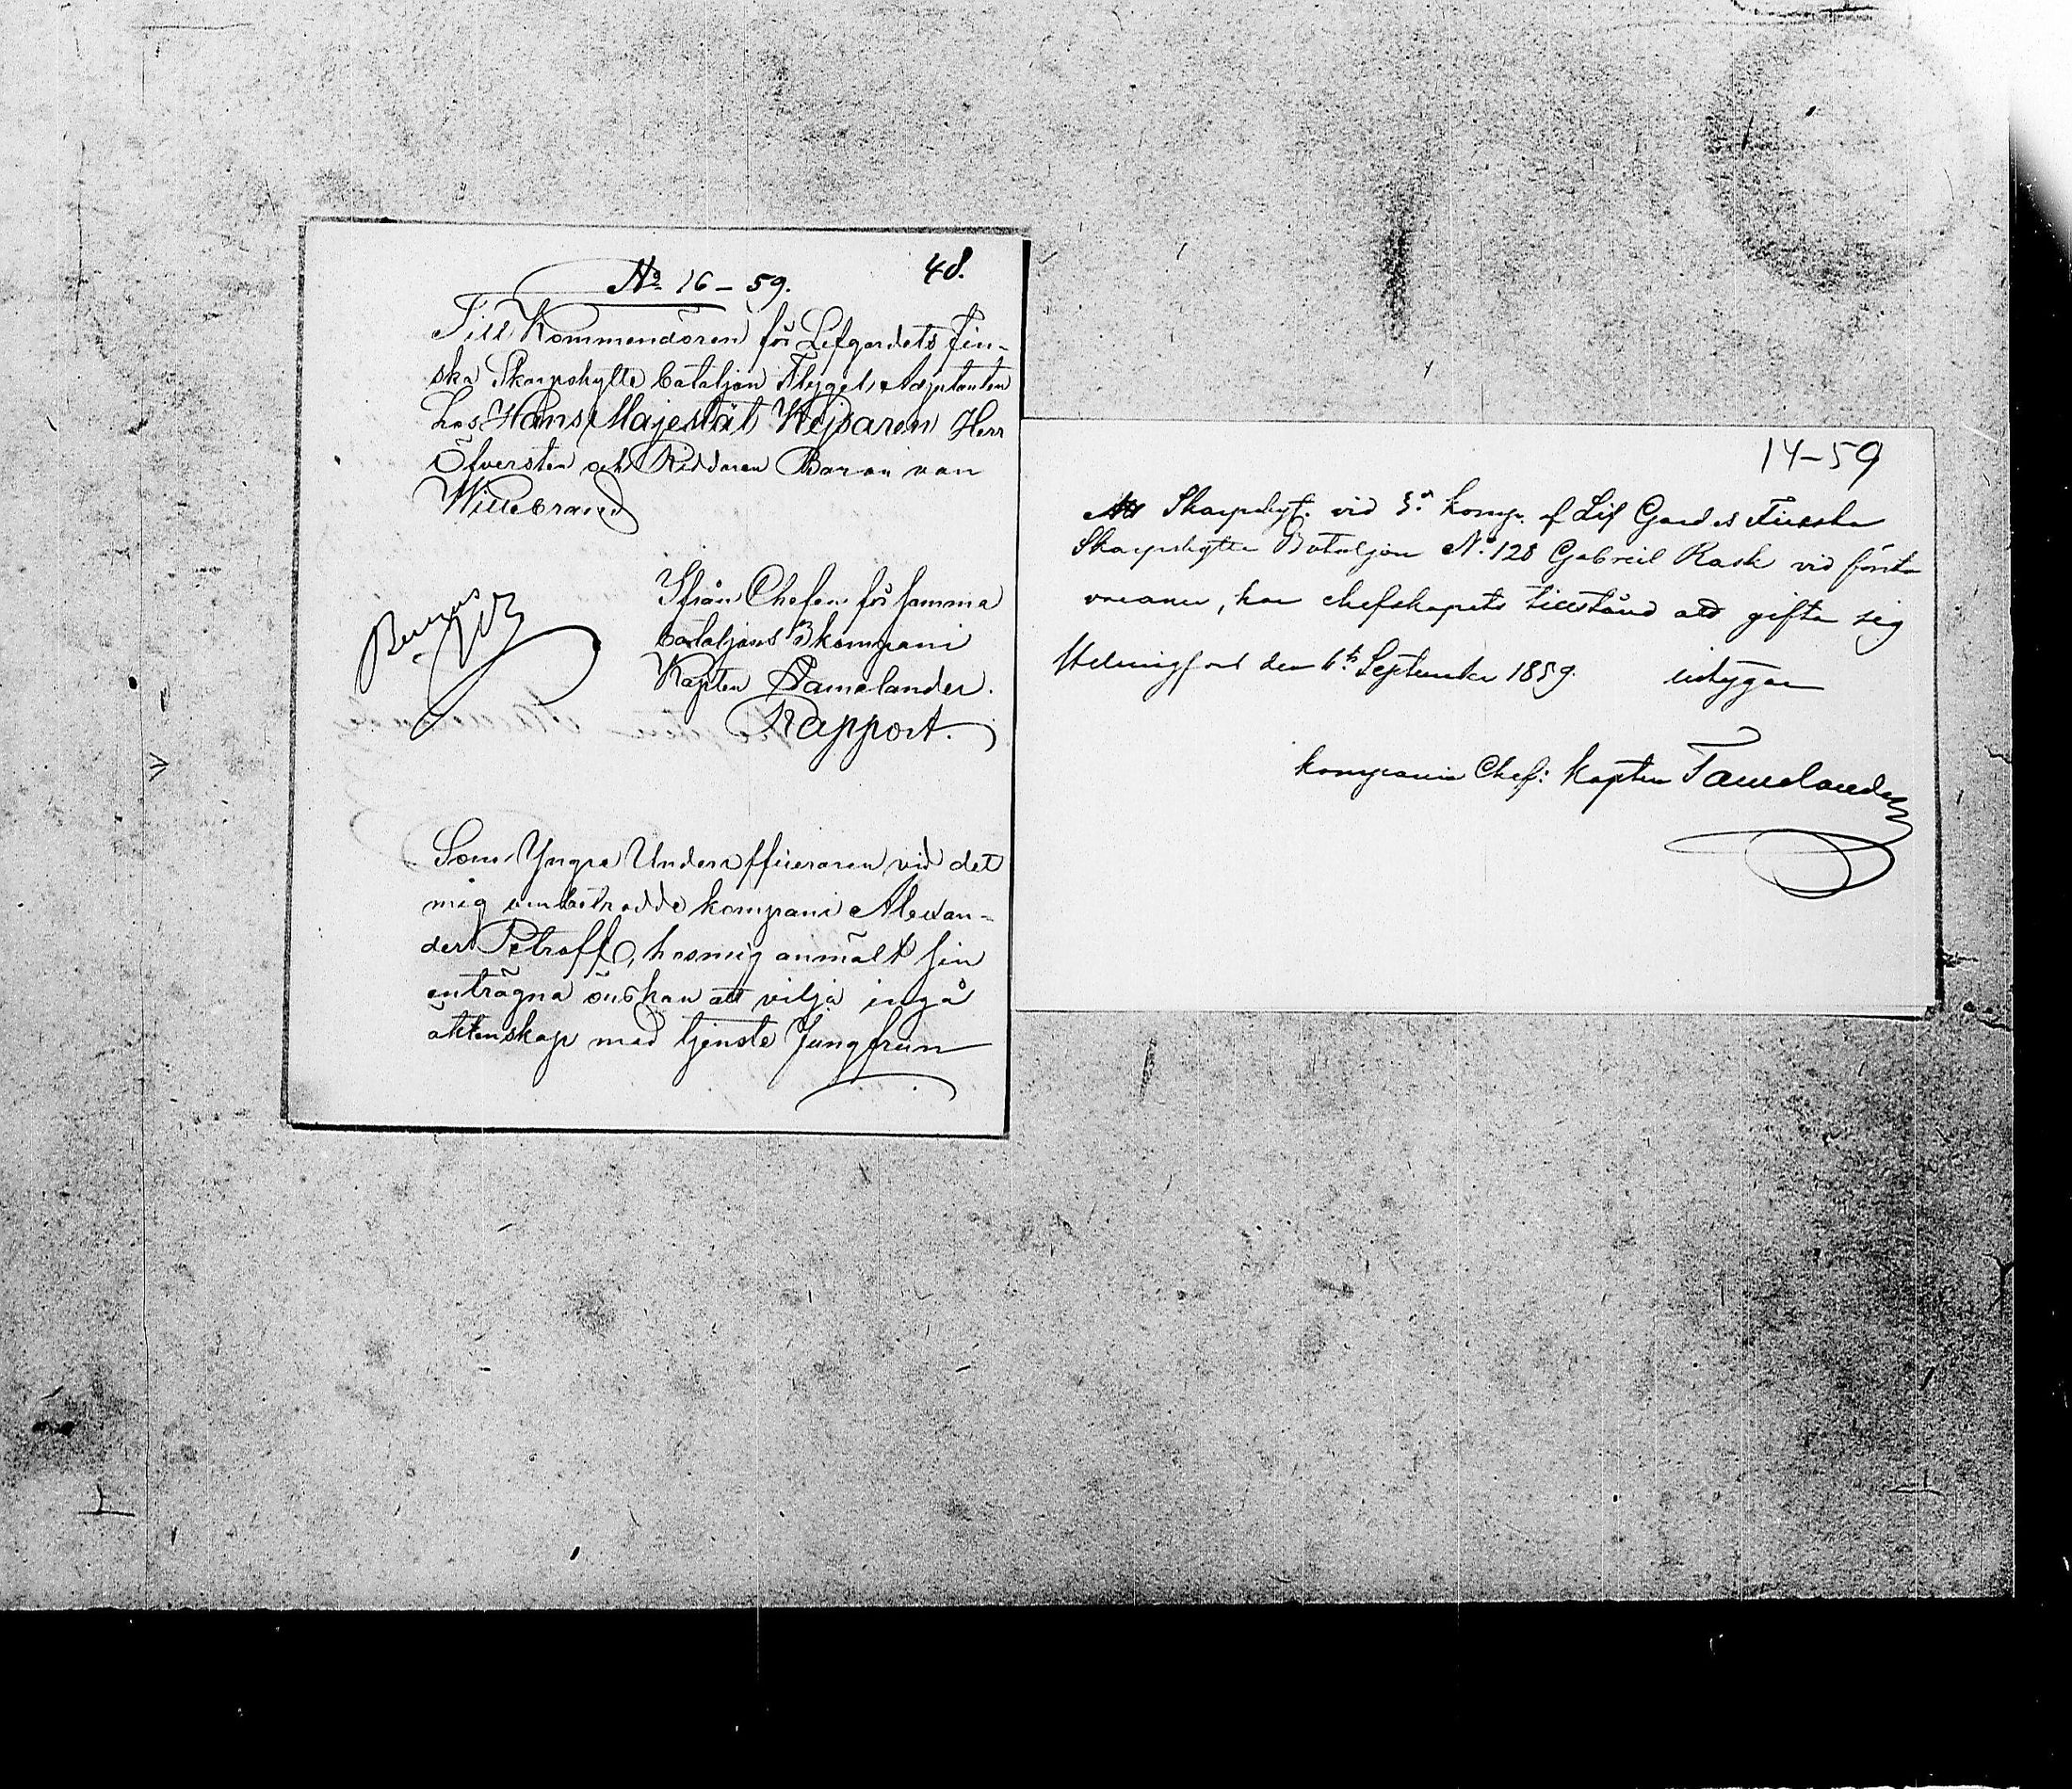 No 16–59.
48.
Till Kommendören för Lifgardets Fin-
ska Skarpskytte bataljon Flygel Adjutanten
hos Hans Majestät Kejsaren Herr
Öfversten och Riddaren Baron von
Willebrand
Ifrån Chefen för samma
bataljons 3 kompani
Kapten Tamelander.
Rapport.
Som Yngre Underofficeraren vid det
mig anbetrodde kompani Alexan-
der Petroff, hos mig anmält sin
enträgna önskan att vilja ingå
äktenskap med tjenste Jungfrun
14–59
Att Skarpskyt. vid 3e komp. af Lif Gardes Finska
Skarpskytte Bataljon No 128 Gabriel Rask vid första
vacance, har chefskapets tillstånd att gifta sig
Helsingfors den 6 September 1859. intygar
kompanie Chef: Kapten Tamelander